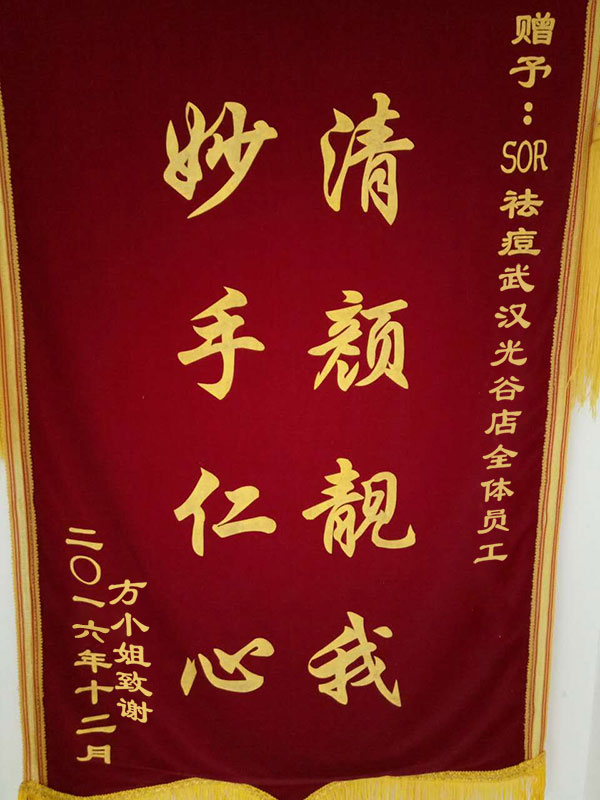 赠予：SOR祛痘武汉光谷店全体员工
清颜靓我
妙手仁心
方小姐致谢
二〇一六年十二月